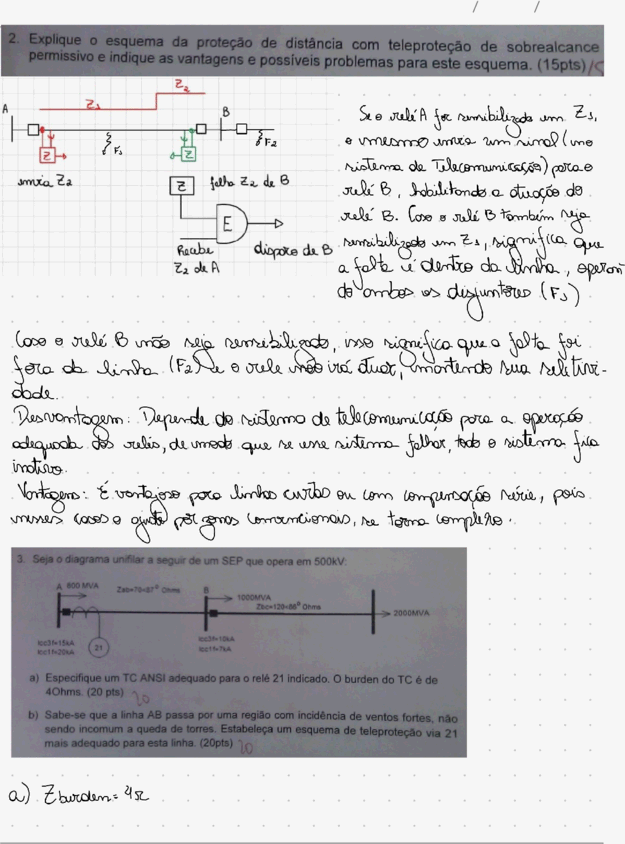 / /
2. Explique o esquema da proteção de distância com teleproteção de sobrealcance
permissivo e indique as vantagens e possíveis problemas para este esquema. (15pts)
A
Z1
Z2
B
F1
F2
Z
Z
envia Z2
Z
falha Z2 de B
E
Recebe
Z2 de A
disparo de B
Se o relé A for sensibilizado em Z1,
o mesmo envia um sinal (via
sistema de Telecomunicação) para o
relé B, habilitando a atuação do
relé B. Caso o relé B também seja
sensibilizado em Z1, significa que
a falta é dentro da linha, operan
do ambos os disjuntores (F1)
Caso o relé B não seja sensibilizado, isso significa que a falta foi
fora da linha (F2) e o rele não irá atuar, mantendo sua seletivi-
dade.
Desvantagem: Depende do sistema de telecomunicação para a operação
adequada dos relés, de modo que se esse sistema falhar, todo o sistema fica
inativo.
Vantagens: É vantajoso para linhas curtas ou com compensação série, pois
nesses casos o ajuste por zonas convencionais, se torna complexo.
3. Seja o diagrama unifilar a seguir de um SEP que opera em 500kV:
A 600 MVA
Zab=70<87° Ohms
B
1000MVA
Zbc=120<86° Ohms
2000MVA
Icc3f=15kA
Icc1f=20kA
21
Icc3f=10kA
Icc1f=7kA
a) Especifique um TC ANSI adequado para o relé 21 indicado. O burden do TC é de
4Ohms. (20 pts) 20
b) Sabe-se que a linha AB passa por uma região com incidência de ventos fortes, não
sendo incomum a queda de torres. Estabeleça um esquema de teleproteção via 21
mais adequado para esta linha. (20pts) 20
a) Zburden = 4Ω